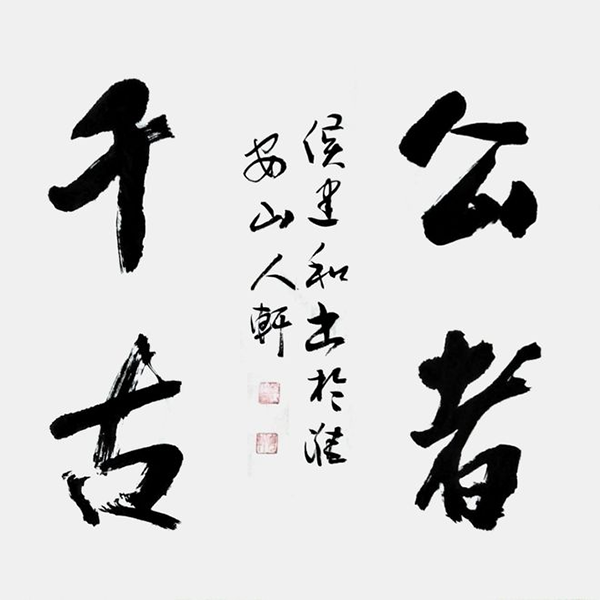 公者
千古
侯建和书於淮
安山人軒